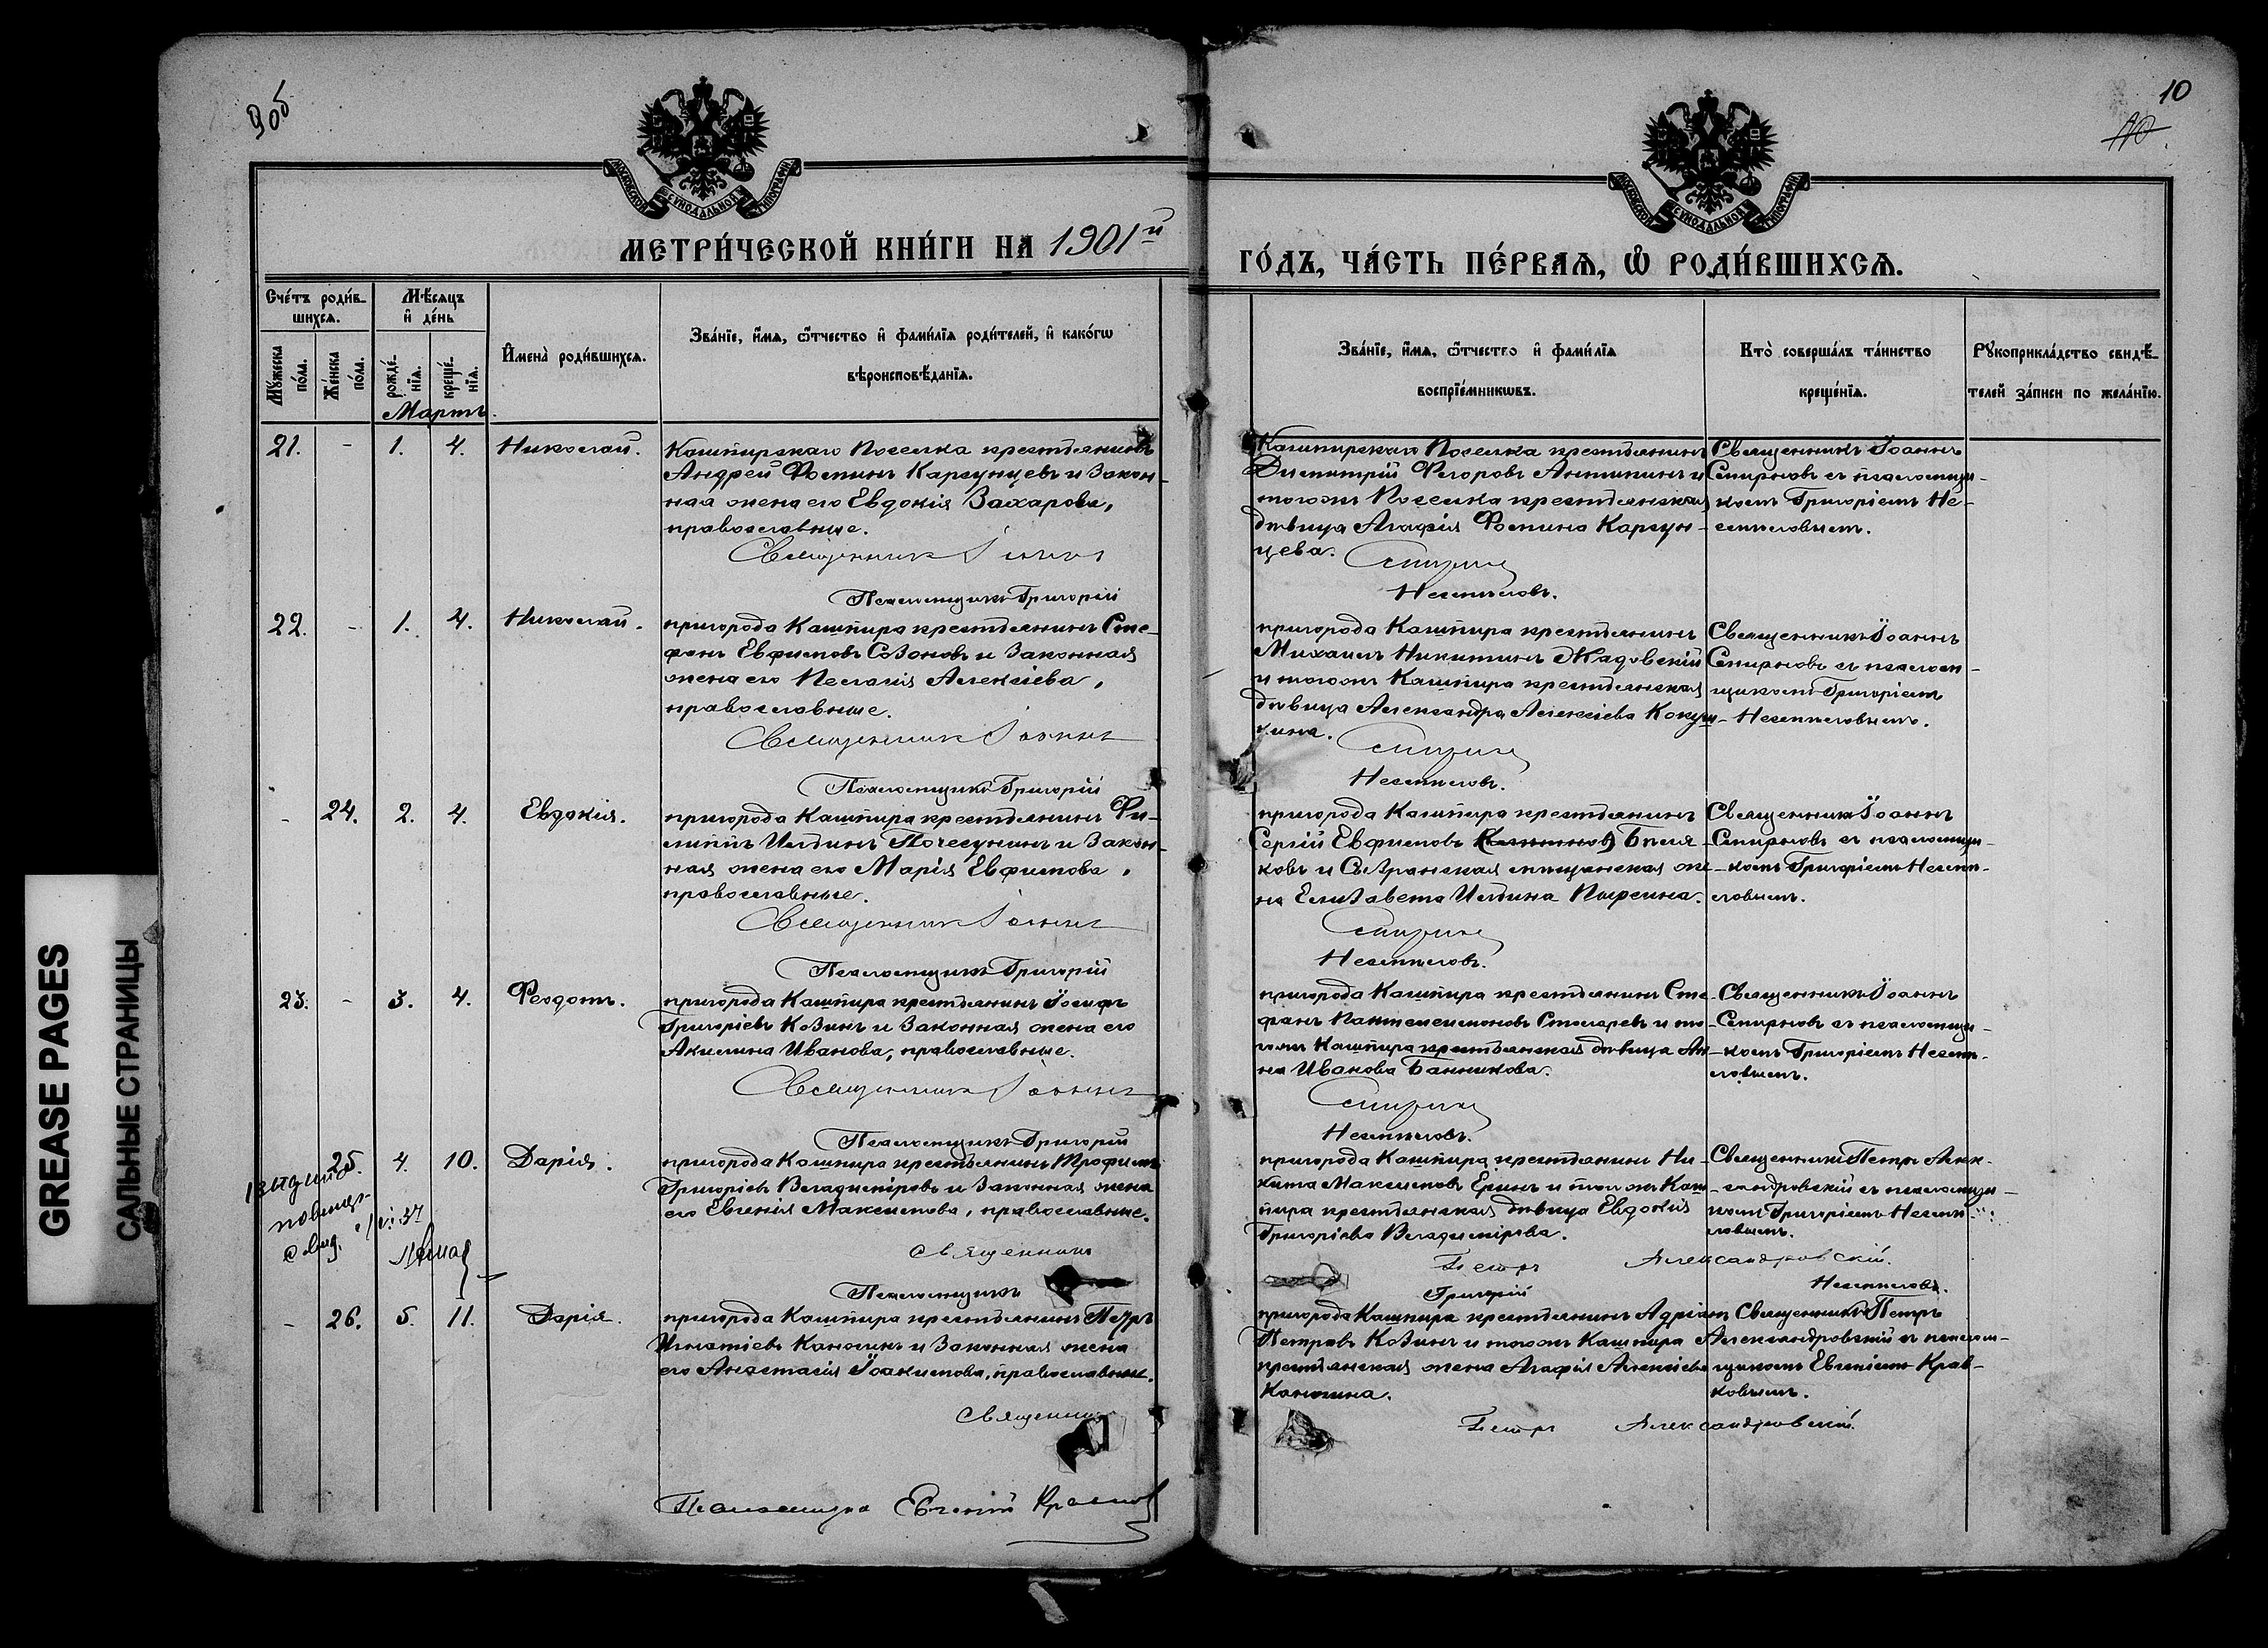 9об
10
10
МОСКОВСКОЙ СѴНОДАЛЬНОЙ ТИПОГРАФІИ
МОСКОВСКОЙ СѴНОДАЛЬНОЙ ТИПОГРАФІИ
МЕТРИ́ЧЕСКОЙ КНИ́ГИ НА 1901й
ГО́ДЪ, ЧА́СТЬ ПЕ́РВАѦ, Ѡ҆ РОДИ́ВШИХСѦ.
Сче́тъ роди́в-
шихсѧ.
Мꙋ́жеска по́ла.
Же́нска по́ла.
Мѣ́сѧцъ
и҆ де́нь
рожде́-
нїѧ.
креще́-
нїѧ.
Мартъ.
И҆мена̀ роди́вшихсѧ.
Зва́нїе, и҆́мѧ, ѻ҆́тчество и҆ фами́лїѧ роди́телей, и҆ како́гѡ
вѣроисповѣ́данїѧ.
Зва́нїе, и҆́мѧ, ѻ҆́тчество и҆ фами́лїѧ
воспрїе́мникѡвъ.
Кто̀ соверша́лъ та́инство
креще́нїѧ.
Рꙋкоприкла́дство свидѣ́-
телей за́писи по жела́нїю.
21. - 1. 4. Николай.
Кашпирскаго Поселка крестьянинъ
Андрей Ѳоминъ Карсунцевъ и закон-
ная жена его Евдокія Захарова,
православные.
Священникъ Іоаннъ
Псаломщикъ Григорій
Кашпирскаго Поселка крестьянинъ
Димитрій Ѳедоровъ Антипинъ и
тогожъ Поселка крестьянская
дѣвица Агафія Ѳомина Карсун-
цева.
Смирнов
Несмѣловъ.
Священникъ Іоаннъ
Смирновъ съ псаломщи-
комъ Григоріемъ Не-
смѣловымъ.
22. - 1. 4. Николай.
пригорода Кашпира крестьянинъ Сте-
фанъ Евфимовъ Созоновъ и законная
жена его Пелагія Алексіева,
православные.
Священникъ Іоаннъ
Псаломщикъ Григорій
пригорода Кашпира крестьянинъ
Михаилъ Никитинъ Жадовскій
и тогожъ Кашпира крестьянская
дѣвица Александра Алексіева Кокуш-
кина.
Смирнов
Несмѣловъ.
Священникъ Іоаннъ
Смирновъ съ псалом-
щикомъ Григоріемъ
Несмѣловымъ.
- 24. 2. 4. Евдокія.
пригорода Кашпира крестьянинъ Фи-
липпъ Ильинъ Почесунинъ и закон-
ная жена его Марія Евфимова,
православные.
Священникъ Іоаннъ
Псаломщикъ Григорій
пригорода Кашпира крестьянинъ
Сергій Евфимовъ Беля-
ковъ и Сызранская мѣщанская же-
на Елизавета Ильина Пырсина.
Смирнов
Несмѣловъ.
Священникъ Іоаннъ
Смирновъ съ псаломщи-
комъ Григоріемъ Несмѣ-
ловымъ.
23. - 3. 4. Ѳеодотъ.
пригорода Кашпира крестьянинъ Іосифъ
Григоріевъ Козинъ и законная жена его
Акилина Иванова, православные.
Священникъ Іоаннъ
Псаломщикъ Григорій
пригорода Кашпира крестьянинъ Сте-
фанъ Пантелеимоновъ Столяревъ и то-
гожъ Кашпира крестьянская дѣвица Ан-
на Иванова Банникова.
Смирнов
Несмѣловъ.
Священникъ Іоаннъ
Смирновъ съ псаломщи-
комъ Григоріемъ Несмѣ-
ловымъ.
25. 4. 10. Дарія.
пригорода Кашпира крестьянинъ Трофимъ
Григоріевъ Владиміровъ и законная жена
его Евгенія Максимова, православные.
Священникъ
Псаломщикъ
пригорода Кашпира крестьянинъ Ни-
кита Максимовъ Еринъ и тогожъ Каш-
пира крестьянская дѣвица Евдокія
Григоріева Владимірова.
Петръ Александровскій.
Григорій Несмѣловъ.
Священникъ Петръ Алек-
сандровскій съ псаломщи-
комъ Григоріемъ Несмѣ-
ловымъ.
- 26. 5. 11. Дарія.
пригорода Кашпира крестьянинъ Петръ
Игнатіевъ Канюкинъ и законная жена
его Анастасія Іоакимова, православные.
Священникъ
Псаломщикъ Евгеній
пригорода Кашпира крестьянинъ Адріанъ
Петровъ Козинъ и тогожъ Кашпира
крестьянская жена Агафія Алексіева
Петръ Александровскій.
Священникъ Петръ
Александровскій съ псалом-
щикомъ Евгеніемъ Крав-
ковымъ.
GREASE PAGES
САЛЬНЫЕ СТРАНИЦЫ